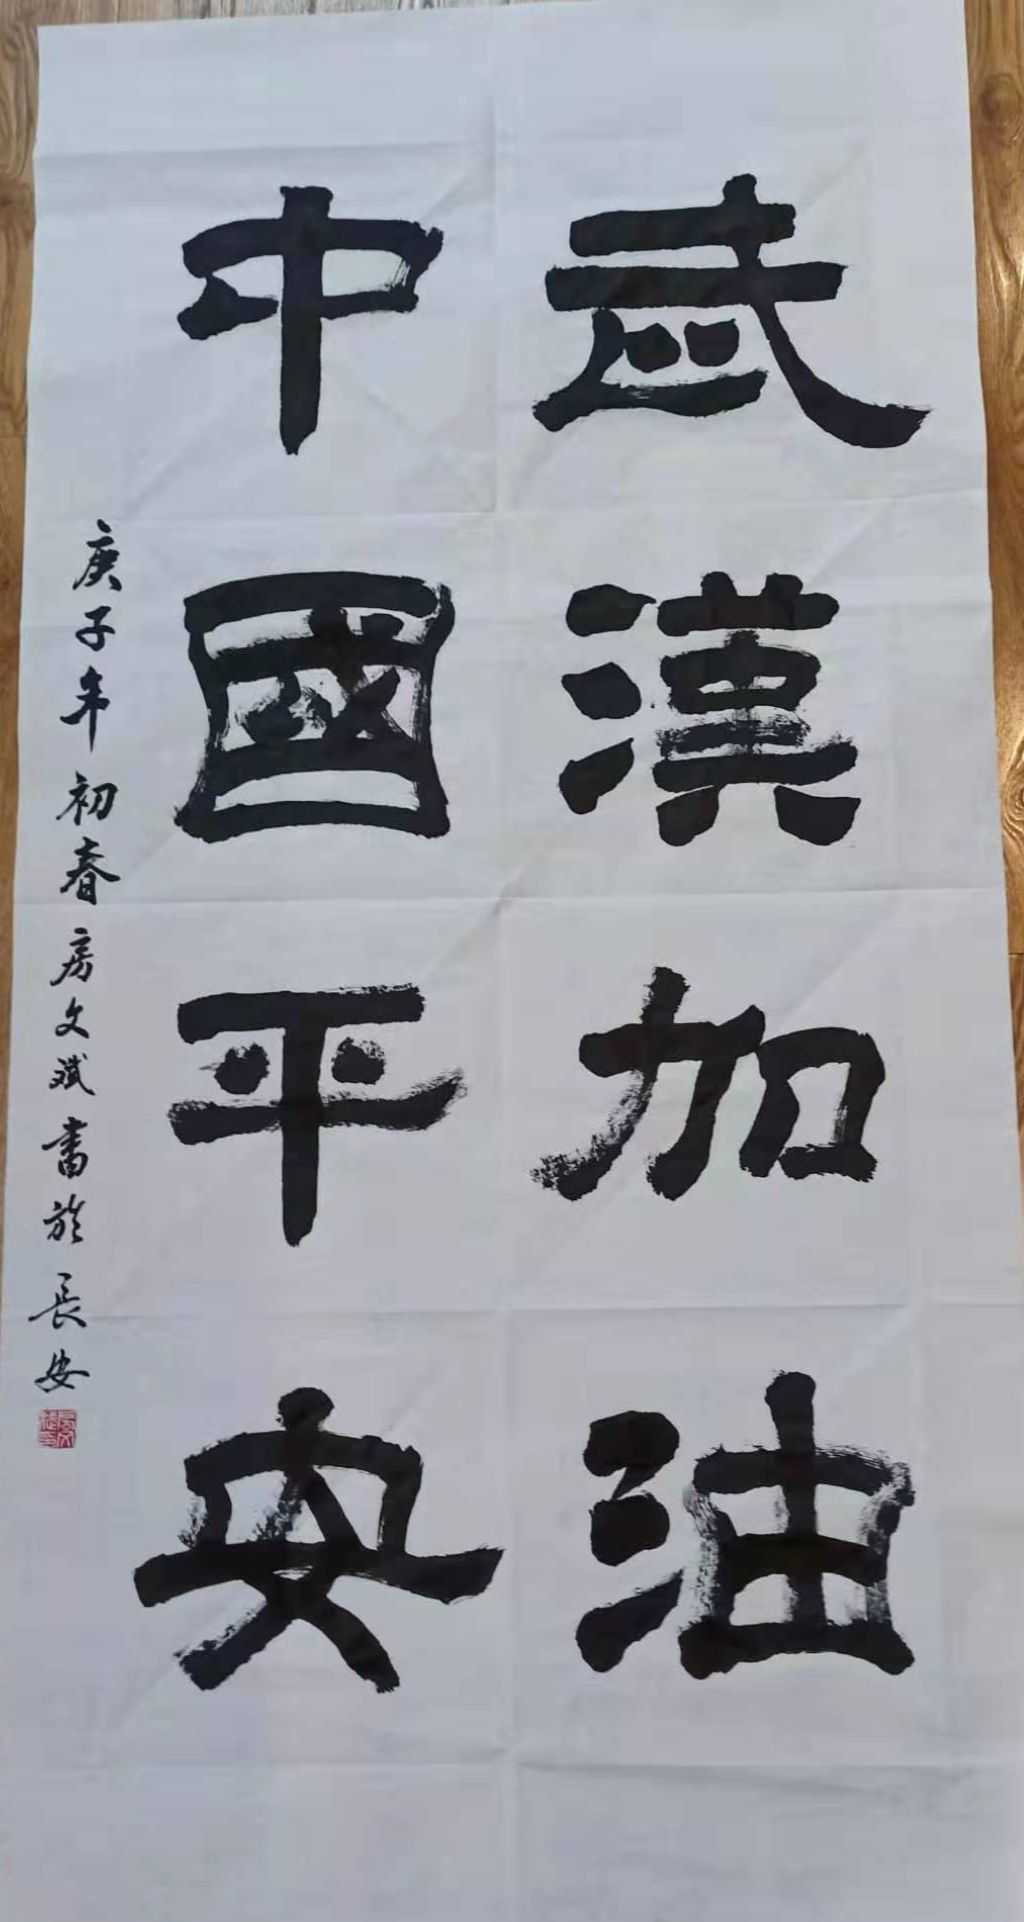 武漢加油
中國平安
庚子年初春房文斌書於長安